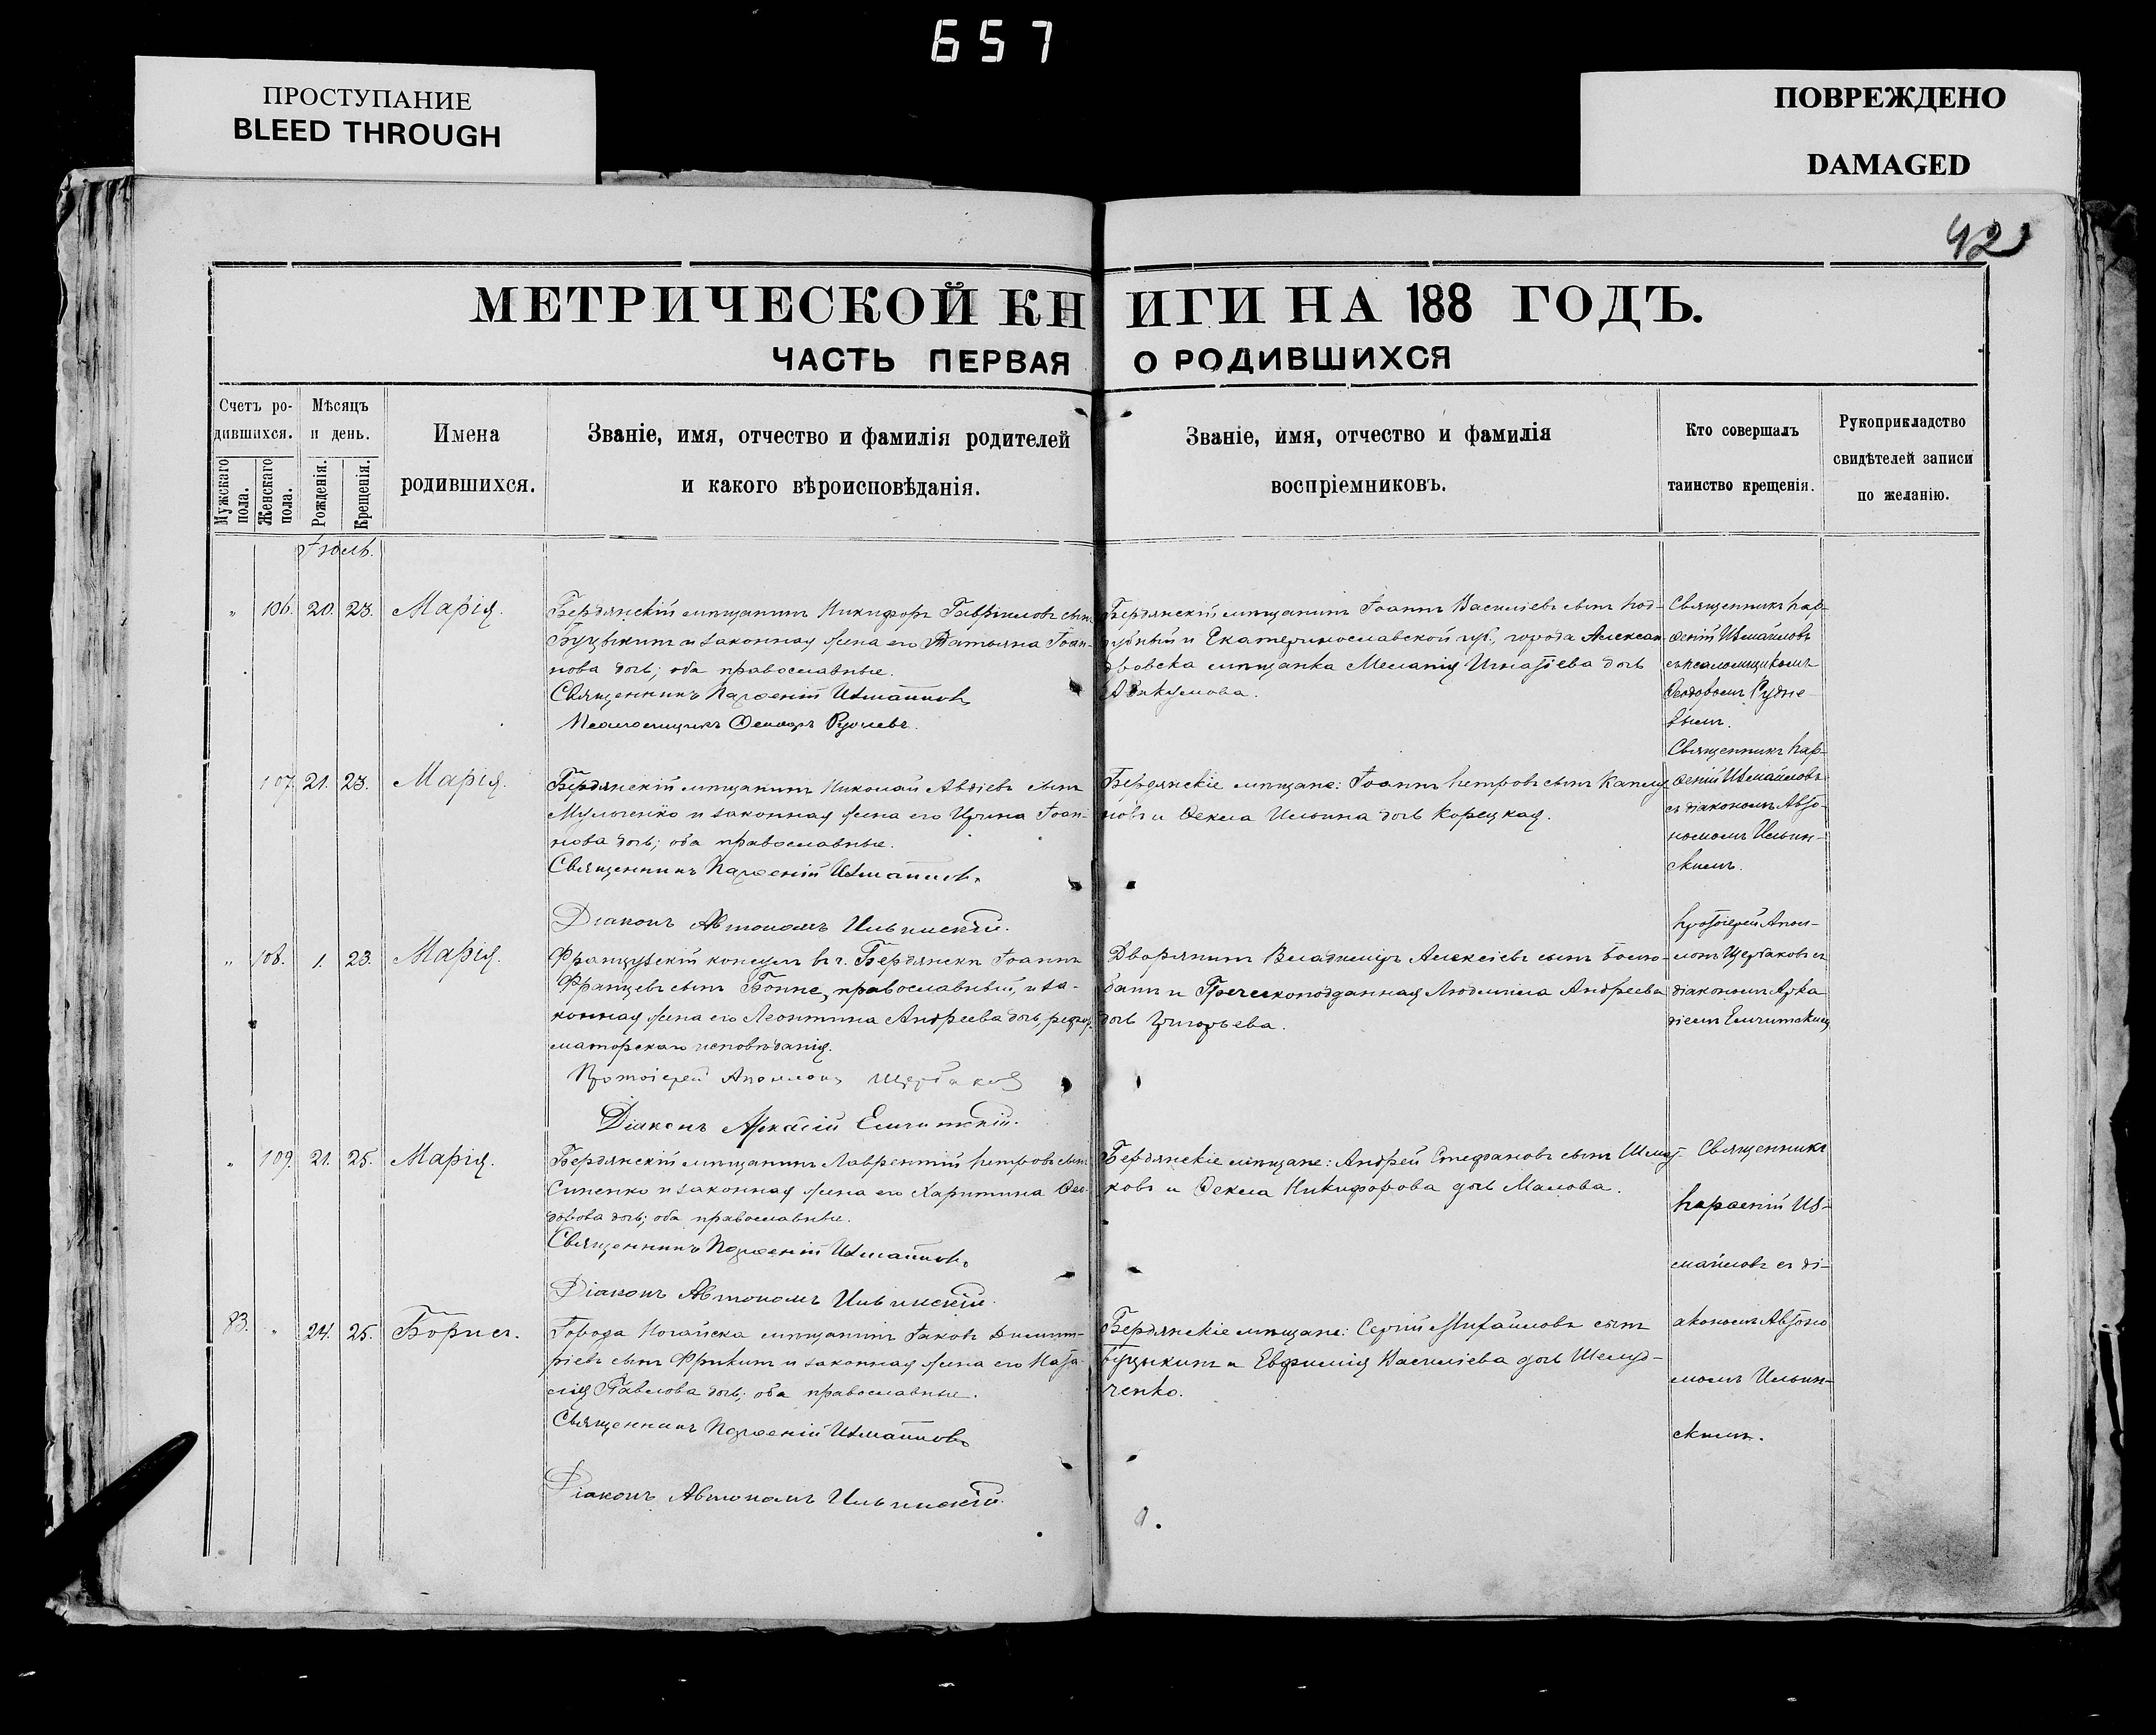 657
ПРОСТУПАНИЕ
BLEED THROUGH
ПОВРЕЖДЕНО
DAMAGED
42
МЕТРИЧЕСКОЙ КНИГИ НА 188 ГОДЪ.
ЧАСТЬ ПЕРВАЯ О РОДИВШИХСЯ
Счетъ ро-
дившихся.
Мужскаго пола.
Женскаго пола.
Мѣсяцъ
и день.
Рожденія.
Крещенія.
Имена
родившихся.
Званіе, имя, отчество и фамилія родителей
и какого вѣроисповѣданія.
Званіе, имя, отчество и фамилія
воспріемниковъ.
Кто совершалъ
таинство крещенія.
Рукоприкладство
свидѣтелей записи
по желанію.
Іюль.
" 106. 20. 23. Марія.
Бердянскій мѣщанинъ Никифоръ Гавріиловъ сынъ
и законная жена его Татьяна Іоан-
нова дочь; оба православные.
Священникъ Парѳеній Измаиловъ
Псаломщикъ Ѳеодоръ Рудневъ.
Бердянскій мѣщанинъ Іоаннъ Василіевъ сынъ Под-
дубный и Екатеринославской губ., города Алексан-
дровска мѣщанка Меланія Игнатіева дочь
Абакумова.
Священникъ Пар-
ѳеній Измаиловъ
съ псаломщикомъ
Ѳеодоромъ Рудне-
вымъ.
107. 21. 23. Марія.
Бердянскій мѣщанинъ Николай Авдіевъ сынъ
и законная жена его Ирина Іоан-
нова дочь; оба православные.
Священникъ Парѳеній Измаиловъ.
Діаконъ Автономъ Ильинскій.
Бердянскіе мѣщане: Іоаннъ Петровъ сынъ
новъ и Ѳекла Ильина дочь Корецкая.
Священникъ Пар-
ѳеній Измаиловъ
съ діакономъ Авто-
номомъ Ильин-
скимъ.
" 108. 1. 23. Марія.
Французскій консулъ въ г. Бердянскѣ Іоаннъ
Францевъ сынъ православный, и за-
конная жена его Леонтина Андреева дочь, рефор-
маторскаго исповѣданія.
Протоіерей Аполлонъ Щербаковъ
Діаконъ Аркадій
Дворянинъ Владиміръ Алексіевъ сынъ Бого-
данъ и Греческоподданная Людмила Андреева
дочь Григорьева.
Протоіерей Апол-
лонъ Щербаковъ съ
діакономъ Арка
діемъ
" 109. 21. 25. Марія.
Бердянскій мѣщанинъ Лаврентій Петровъ сынъ
Синенко и законная жена его Харитина Ѳео-
дорова дочь; оба православные.
Священникъ Парѳеній Измаиловъ.
Діаконъ Автономъ Ильинскій.
Бердянскіе мѣщане: Андрей Стефановъ сынъ
ковъ и Ѳекла Никифорова дочь Малова.
Священникъ
Парѳеній Из-
маиловъ съ ді-
акономъ Автоно
момъ Ильин-
скимъ.
83. " 24. 25. Борисъ.
Города Ногайска мѣщанинъ Іаковъ Димит-
ріевъ сынъ Фрикинъ и законная жена его Ната-
лія Павлова дочь; оба православные.
Священникъ Парѳеній Измаиловъ
Діаконъ Автономъ Ильинскій.
Бердянскіе мѣщане: Сергій Михайловъ сынъ
и Евфимія Василіева дочь Шелуд-
ченко.